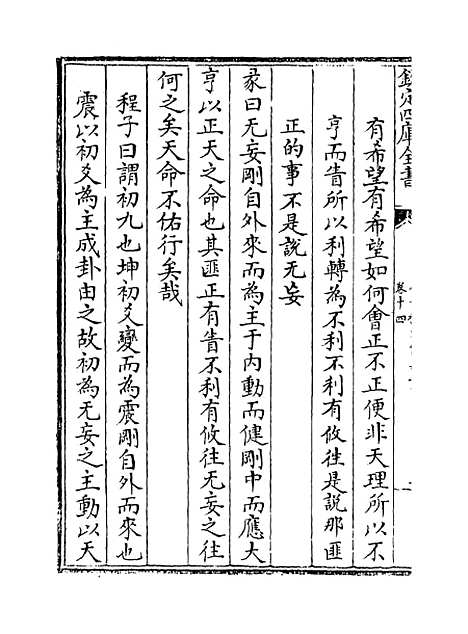 欽定四庫全書
卷十四
有希望有希望如何會正不正便非天理所以不
亨而眚所以利轉為不利不利有攸往是說那匪
正的事不是說无妄
彖曰无妄剛自外來而為主于内動而健剛中而應大
亨以正天之命也其匪正有眚不利有攸往无妄之往
何之矣天命不佑行矣哉
程子曰謂初九也坤初爻變而為震剛自外而來也
震以初爻為主成卦由之故初為无妄之主動以天